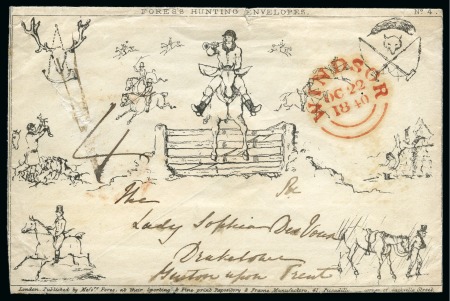 FORES'S HUNTING ENVELOPES.
No. 4.
WINDSOR
OC 22
1840
4
The
Lady Sophia Des Voeux
Drakelowe
Burton upon Trent
London. Published by Messrs. Fores, at their Sporting & Fine print Repository & Frame Manufacturers, 41, Piccadilly, corner of Sackville Street.